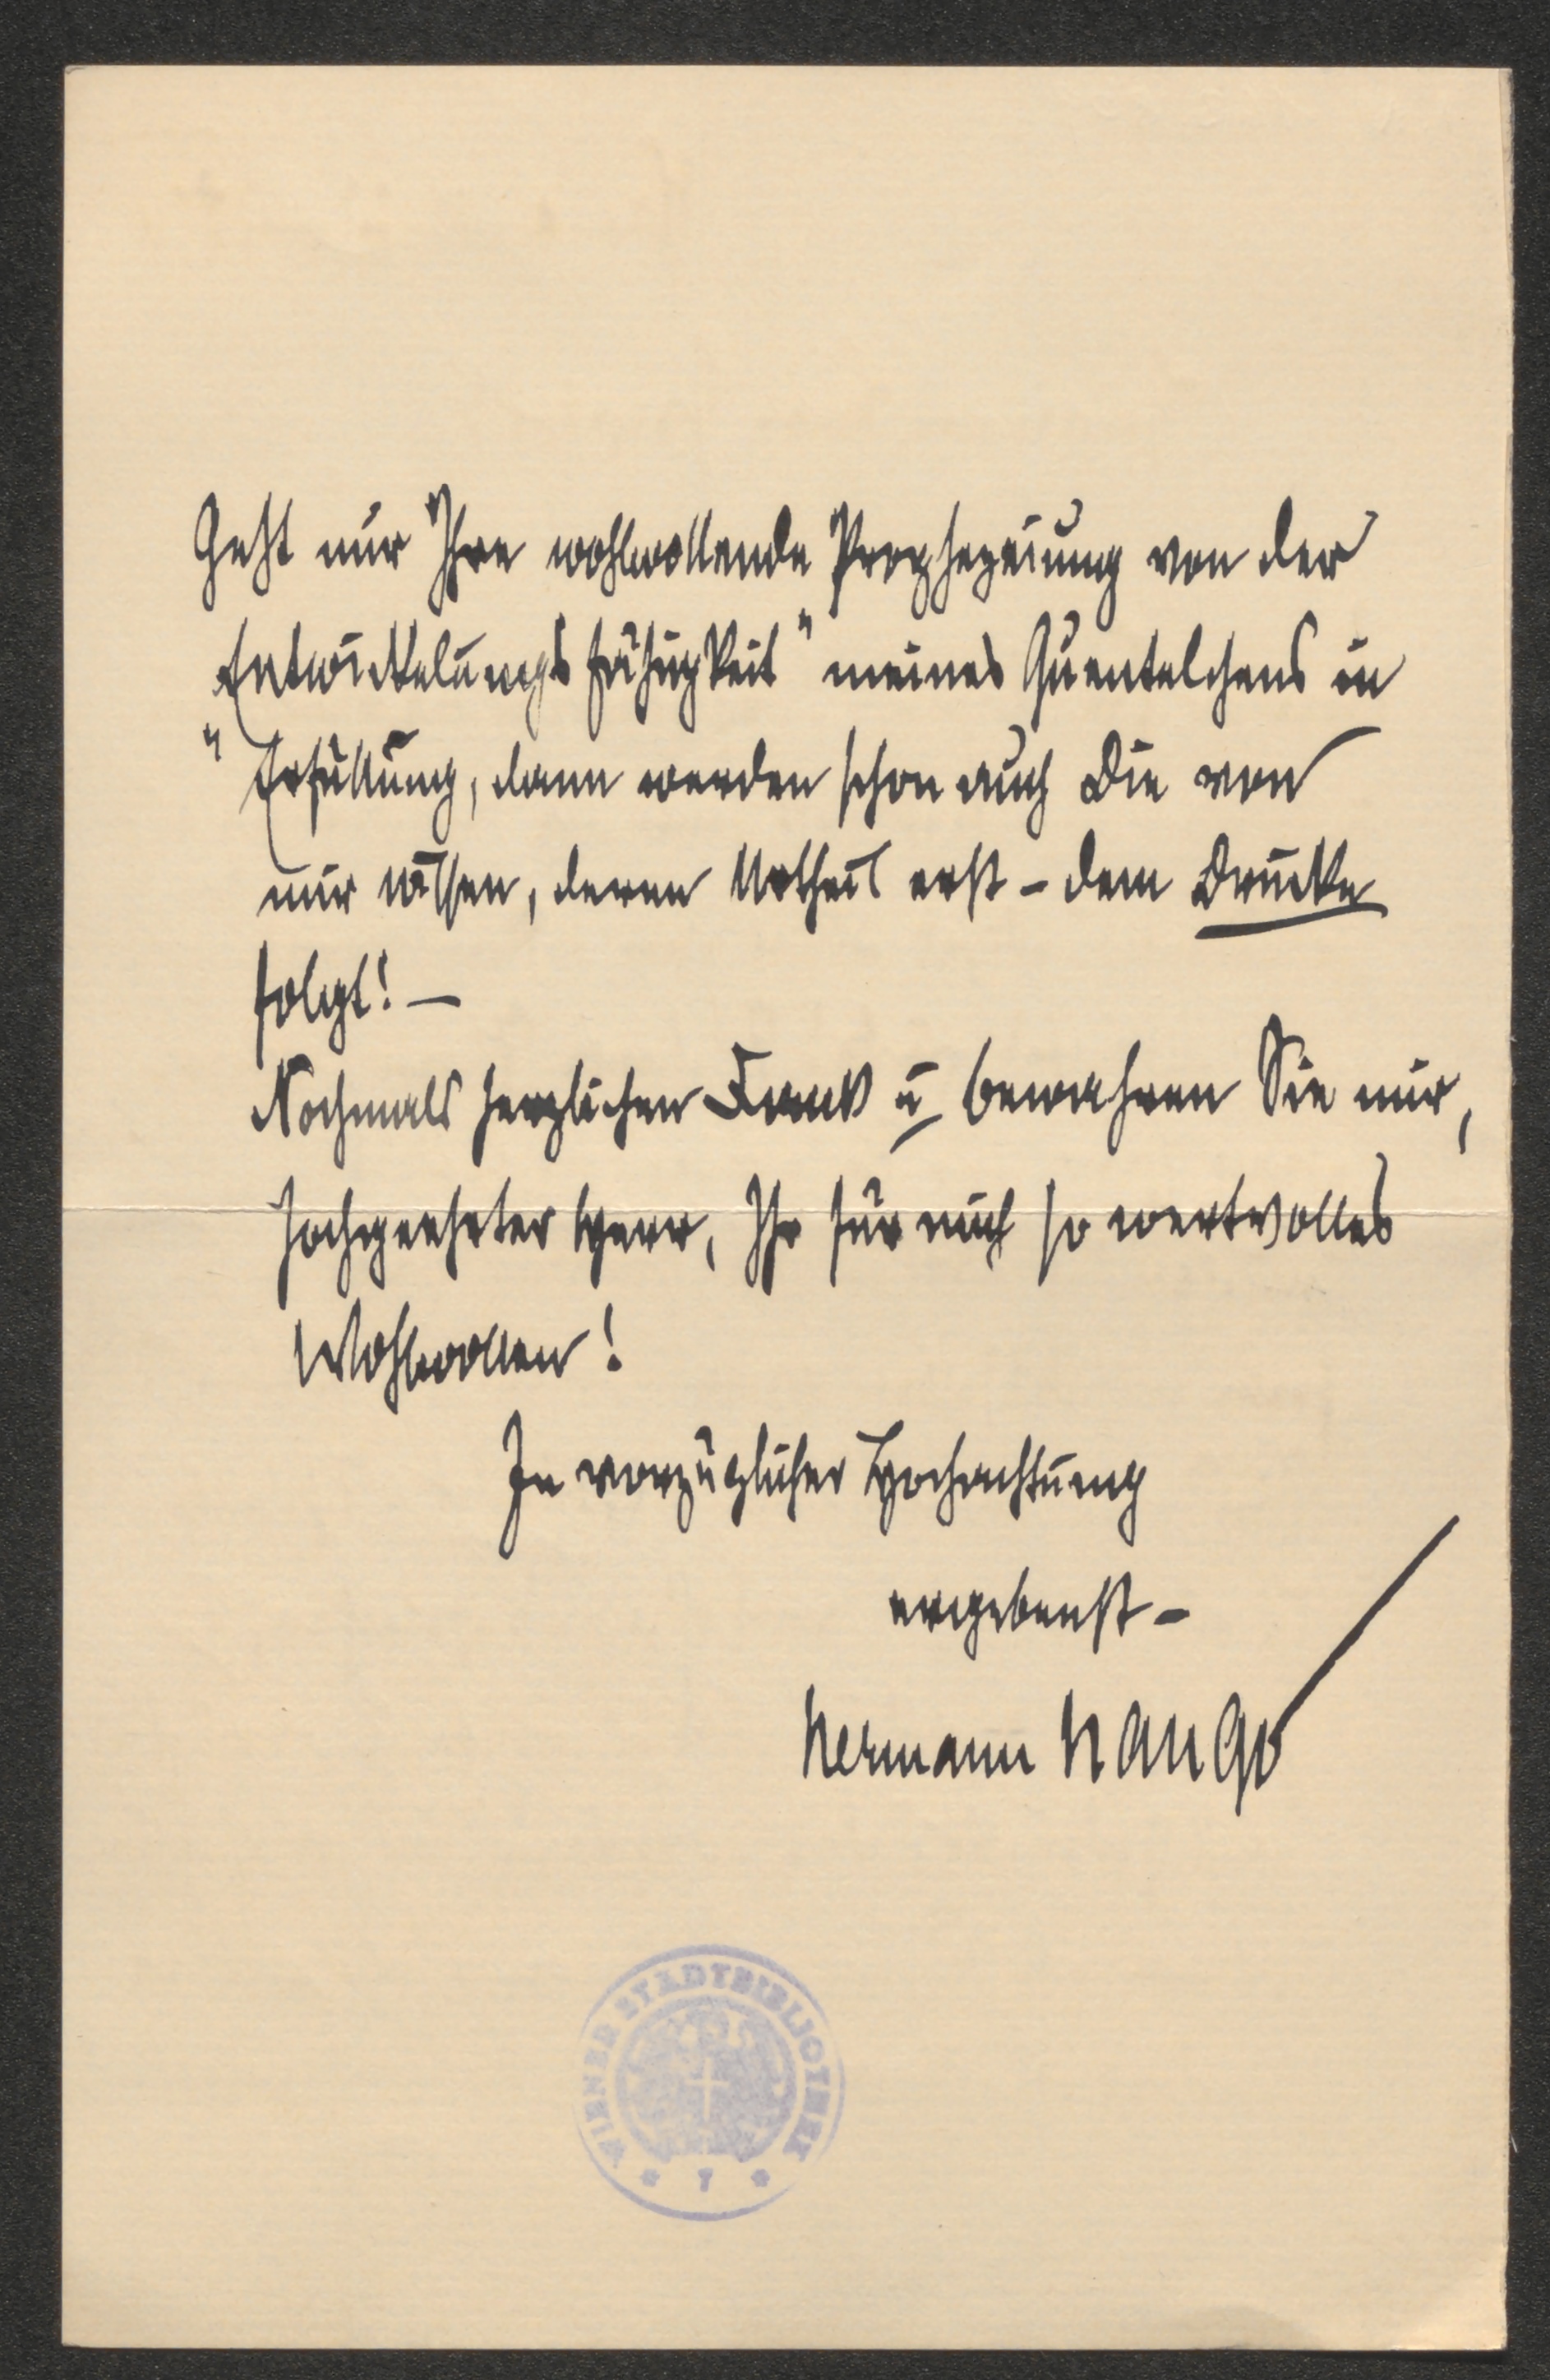 Geht nur Ihre wohlwollende Prophezeiung von der
„Entwickelungsfähigkeit" meines Quentelchens in
Erfüllung, dann werden schon auch die von
mir wissen, deren Urtheil erst – dem Drucke
folgt! –
Nochmals herzlichen Dank u bewahren Sie mir,
hochgeehrter Herr, Ihr für mich so wertvolles
Wohlwollen!
In vorzüglicher Hochachtung
ergebenst –
Hermann Hango
WIENER STADTBIBLIOTHEK
* 7 *